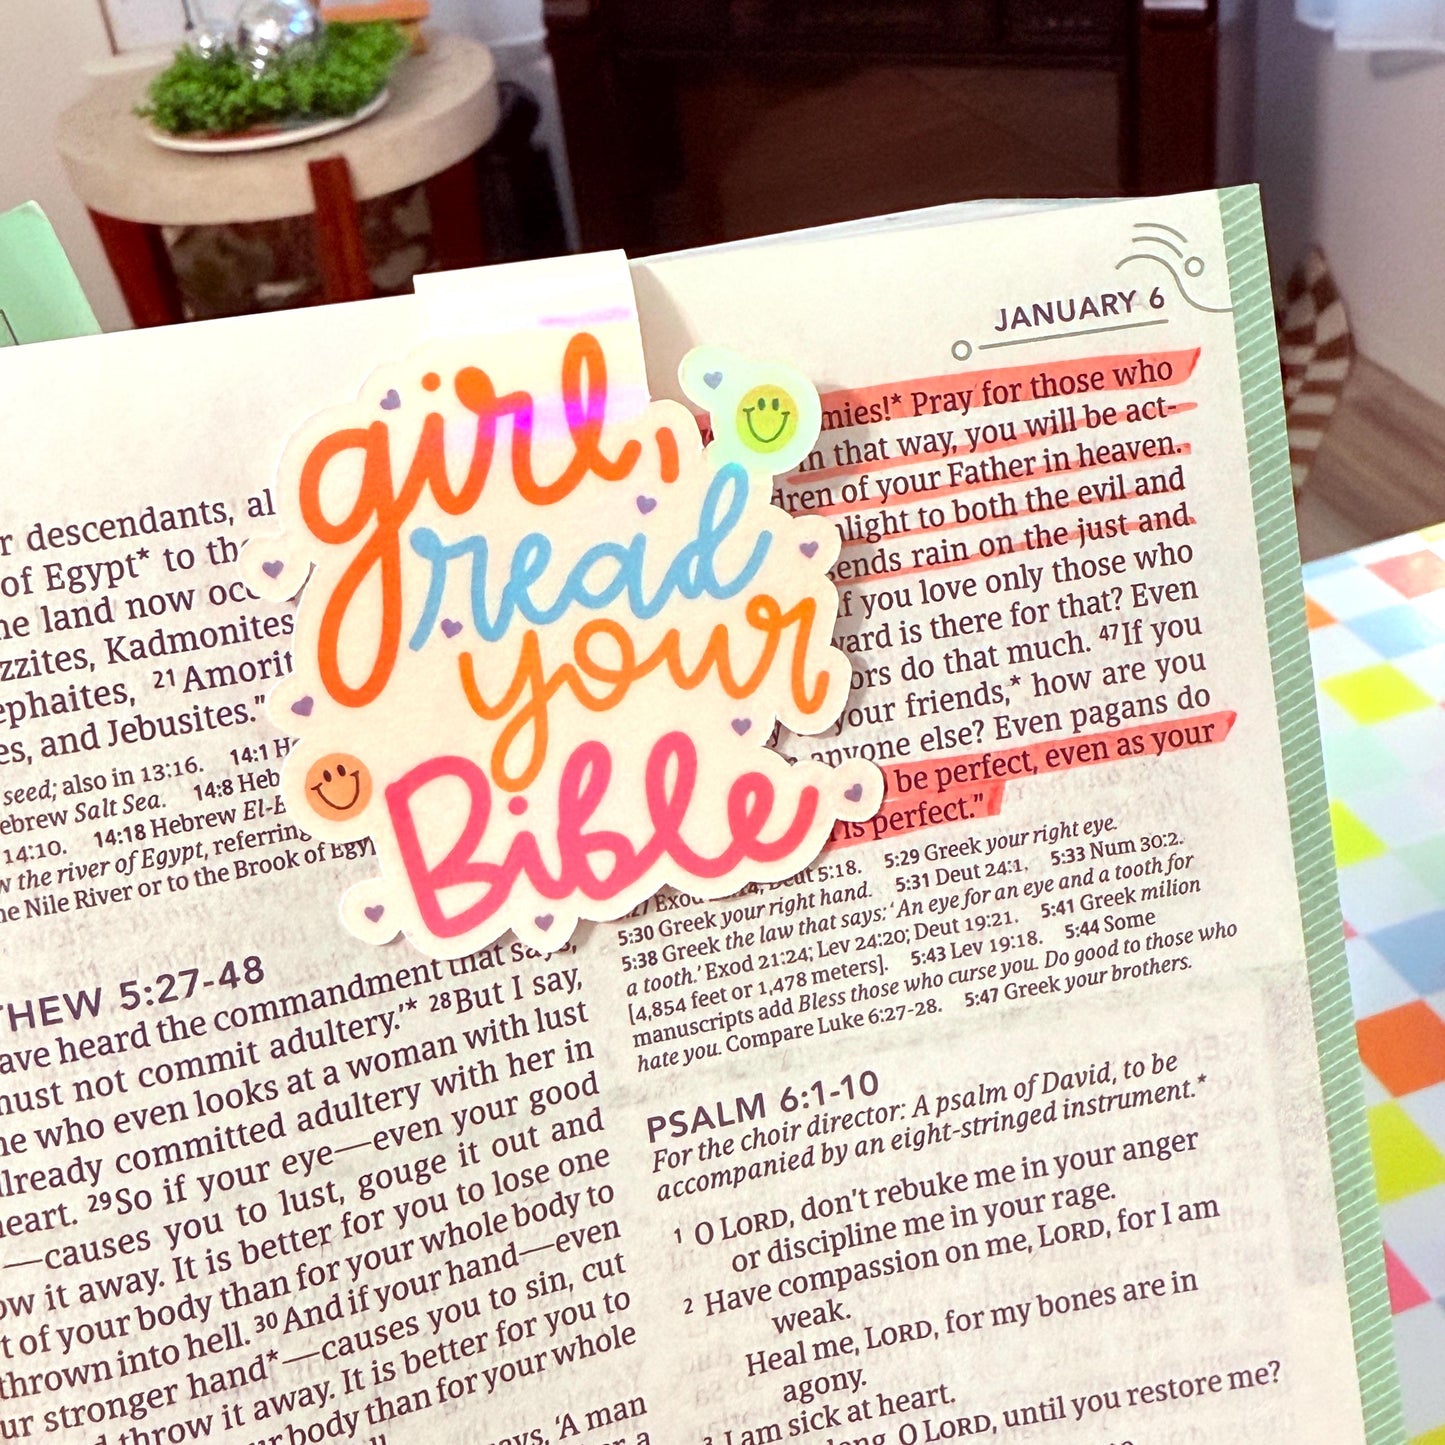 JANUARY 6
girl,
read
your
Bible
r descendants, al
of Egypt* to th
land now occ
zzites, Kadmonites
ephaites, 21 Amorit
es, and Jebusites."
seed; also in 13:16. 14:1 H
ebrew Salt Sea. 14:8 Heb
14:10. 14:18 Hebrew El-E
w the river of Egypt, referring
he Nile River or to the Brook of Egyp
THEW 5:27-48
ave heard the commandment that says,
must not commit adultery.'* 28 But I say,
ne who even looks at a woman with lust
lready committed adultery with her in
heart. 29 So if your eye—even your good
—causes you to lust, gouge it out and
ow it away. It is better for you to lose one
t of your body than for your whole body to
thrown into hell. 30 And if your hand—even
ur stronger hand*—causes you to sin, cut
throw it away. It is better for you to
ur body than for your whole
ays, 'A man
mies!* Pray for those who
in that way, you will be act-
dren of your Father in heaven.
nlight to both the evil and
sends rain on the just and
If you love only those who
ward is there for that? Even
ors do that much. 47 If you
your friends,* how are you
anyone else? Even pagans do
be perfect, even as your
is perfect."
5:27 Exod Deut 5:18. 5:29 Greek your right eye.
5:30 Greek your right hand. 5:31 Deut 24:1. 5:33 Num 30:2.
5:38 Greek the law that says: 'An eye for an eye and a tooth for
a tooth.' Exod 21:24; Lev 24:20; Deut 19:21. 5:41 Greek milion
[4,854 feet or 1,478 meters]. 5:43 Lev 19:18. 5:44 Some
manuscripts add Bless those who curse you. Do good to those who
hate you. Compare Luke 6:27-28. 5:47 Greek your brothers.
PSALM 6:1-10
For the choir director: A psalm of David, to be
accompanied by an eight-stringed instrument.*
1 O LORD, don't rebuke me in your anger
or discipline me in your rage.
2 Have compassion on me, LORD, for I am
weak.
Heal me, LORD, for my bones are in
agony.
3 I am sick at heart.
long, O LORD, until you restore me?